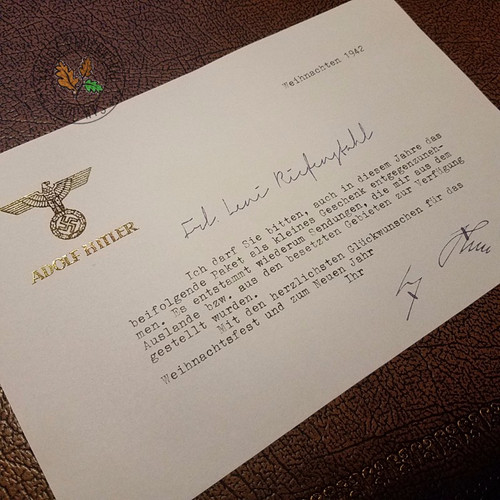 Weihnachten 1942
ADOLF HITLER
Frl. Leni Riefenstahl
Ich darf Sie bitten, auch in diesem Jahre das
beifolgende Paket als kleines Geschenk entgegenzuneh-
men. Es entstammt wiederum Sendungen, die mir aus dem
Auslande bzw. aus den besetzten Gebieten zur Verfügung
gestellt wurden.
Mit den herzlichsten Glückwunschen für das
Weihnachtsfest und zum Neuen Jahr
Ihr